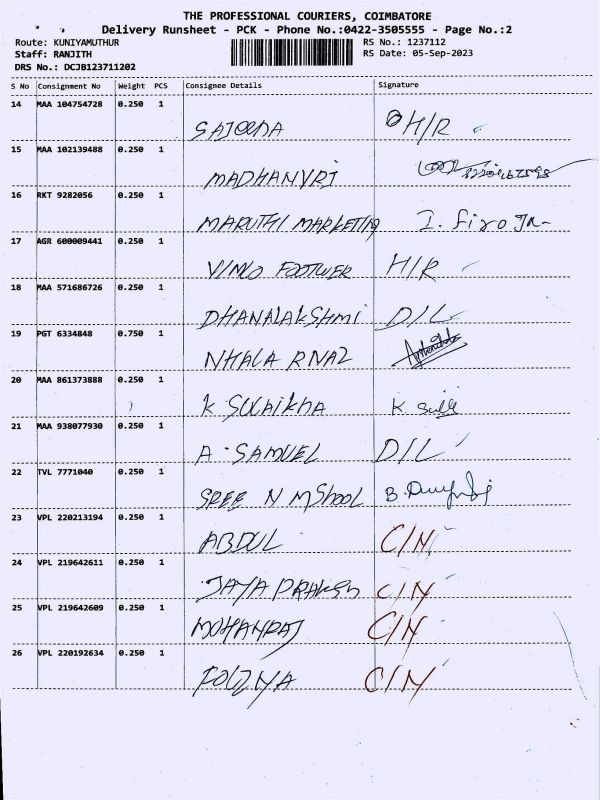 THE PROFESSIONAL COURIERS, COIMBATORE
Delivery Runsheet - PCK - Phone No.:0422-3505555 - Page No.:2
Route: KUNIYAMUTHUR RS No.: 1237112
Staff: RANJITH RS Date: 05-Sep-2023
DRS No.: DCJB123711202
S No Consignment No Weight PCS Consignee Details Signature
14 MAA 104754728 0.250 1
SAJOONA H/R
15 MAA 102139488 0.250 1
MADHANVRJ
16 RKT 9282056 0.250 1
MARUTHI MARKETING I. Firo
17 AGR 600009441 0.250 1
VINLO FOOTWER H/R
18 MAA 571686726 0.250 1
DHANALAKSHMI D/L
19 PGT 6334848 0.750 1
NHALA RNAZ
20 MAA 861373888 0.250 1
K SULAIKHA K
21 MAA 938077930 0.250 1
A. SAMUEL D/L
22 TVL 7771040 0.250 1
SREE N M School B.
23 VPL 220213194 0.250 1
ABDUL C/N
24 VPL 219642611 0.250 1
JAYA PRAKASH C/N
25 VPL 219642609 0.250 1
MOHANRAJ C/N
26 VPL 220192634 0.250 1
FOUZIYA C/N